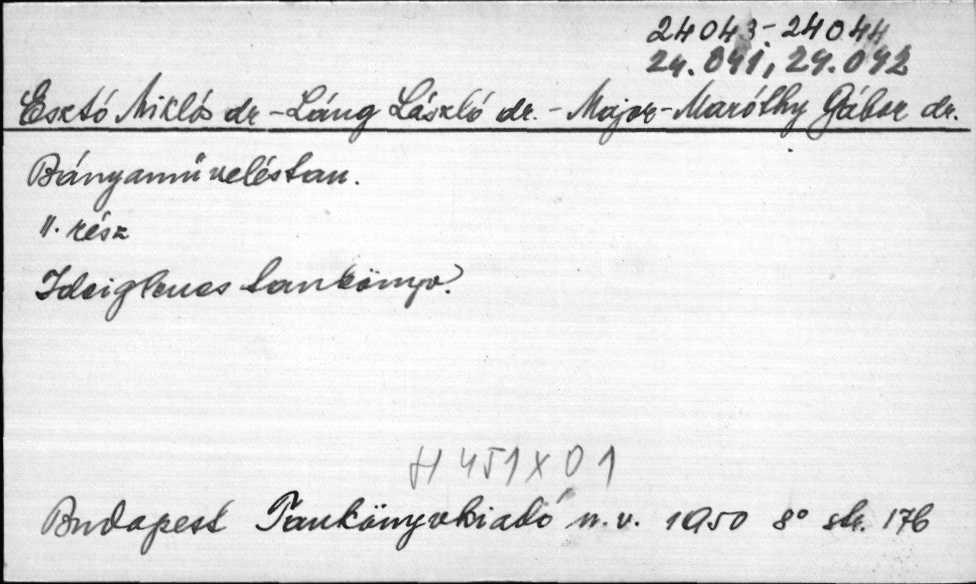 24043-24044
24.041, 24.042
Esztó Miklós dr - Láng László dr. - Major-Maróthy Gábor dr.
Bányaművelés tan.
II. rész
Ideiglenes tankönyv.
H 451 X 01
Budapest Tankönyvkiadó n.v. 1950 8° str. 176